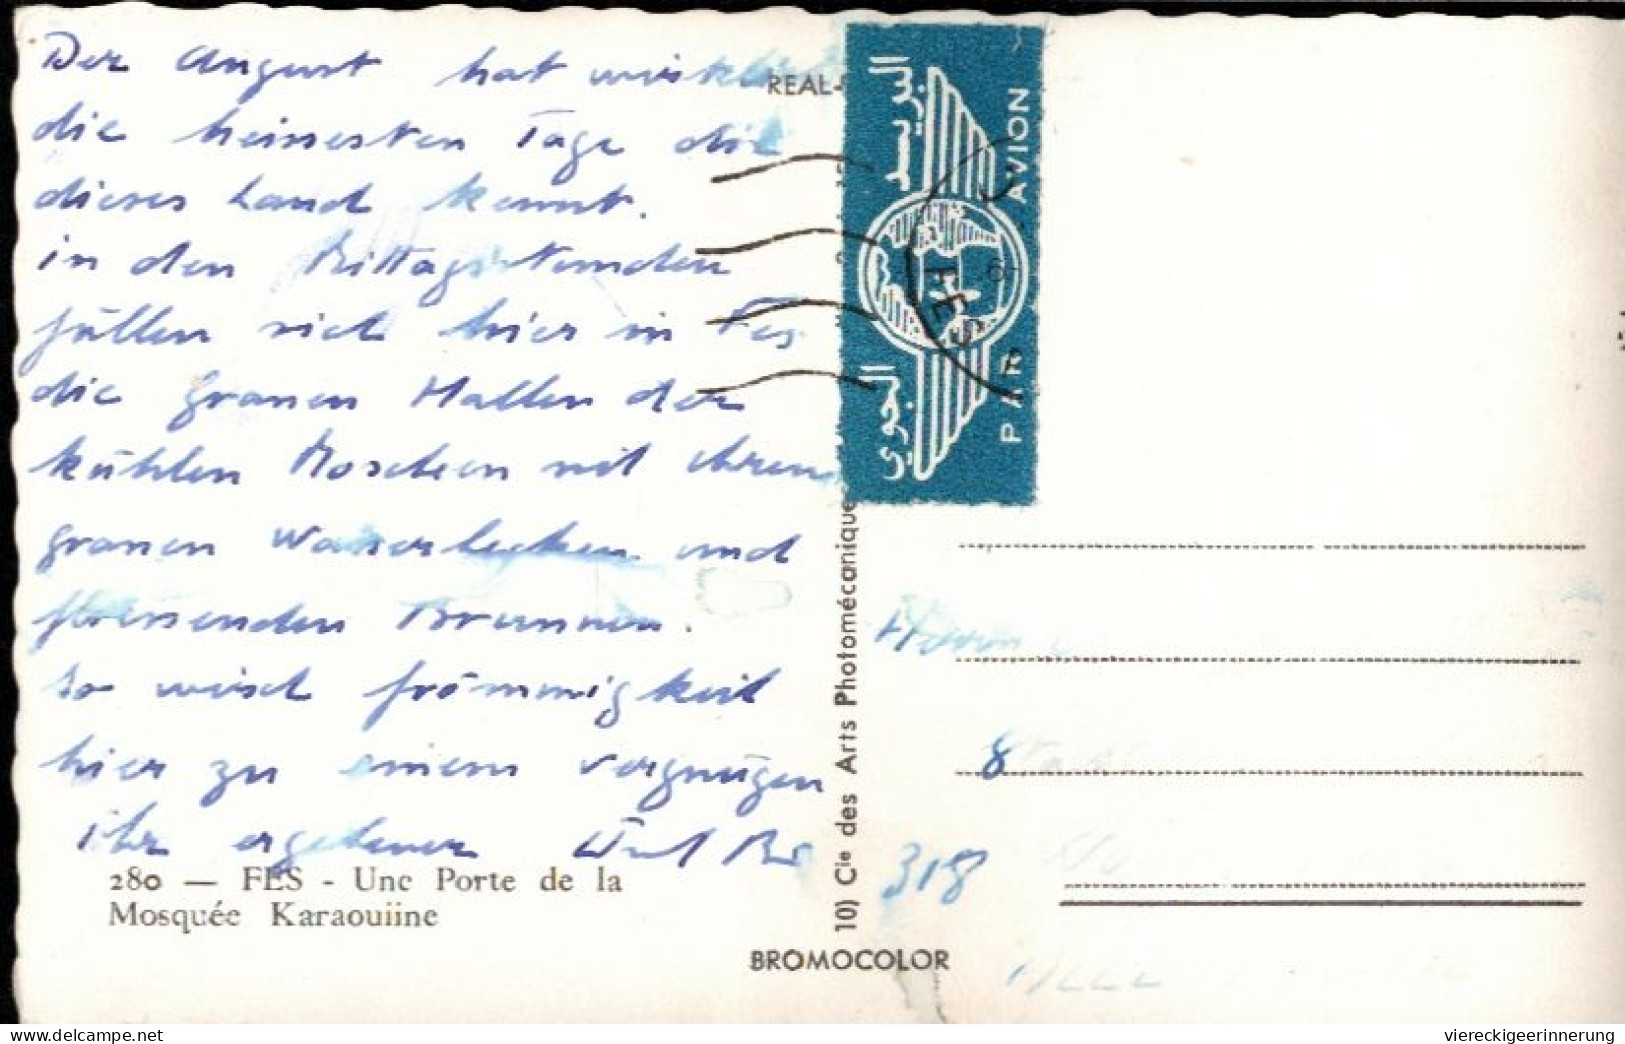 Der August hat wirklich
die heissesten Tage die
dieses Land kennt.
in den Mittagsstunden
füllen sich hier in Fes
die grauen Hallen der
kühlen Moscheen mit ihren
grauen Wasserbecken und
fliessenden Brunnen.
so wird frömmigkeit
hier zu einem vergnügen
ihr ergebener
280 — FES - Une Porte de la
Mosquée Karaouiine
REAL-
10) Cie des Arts Photomécanique
BROMOCOLOR
البريد الجوي
PAR AVION
FES
318
viereckigeerinnerung